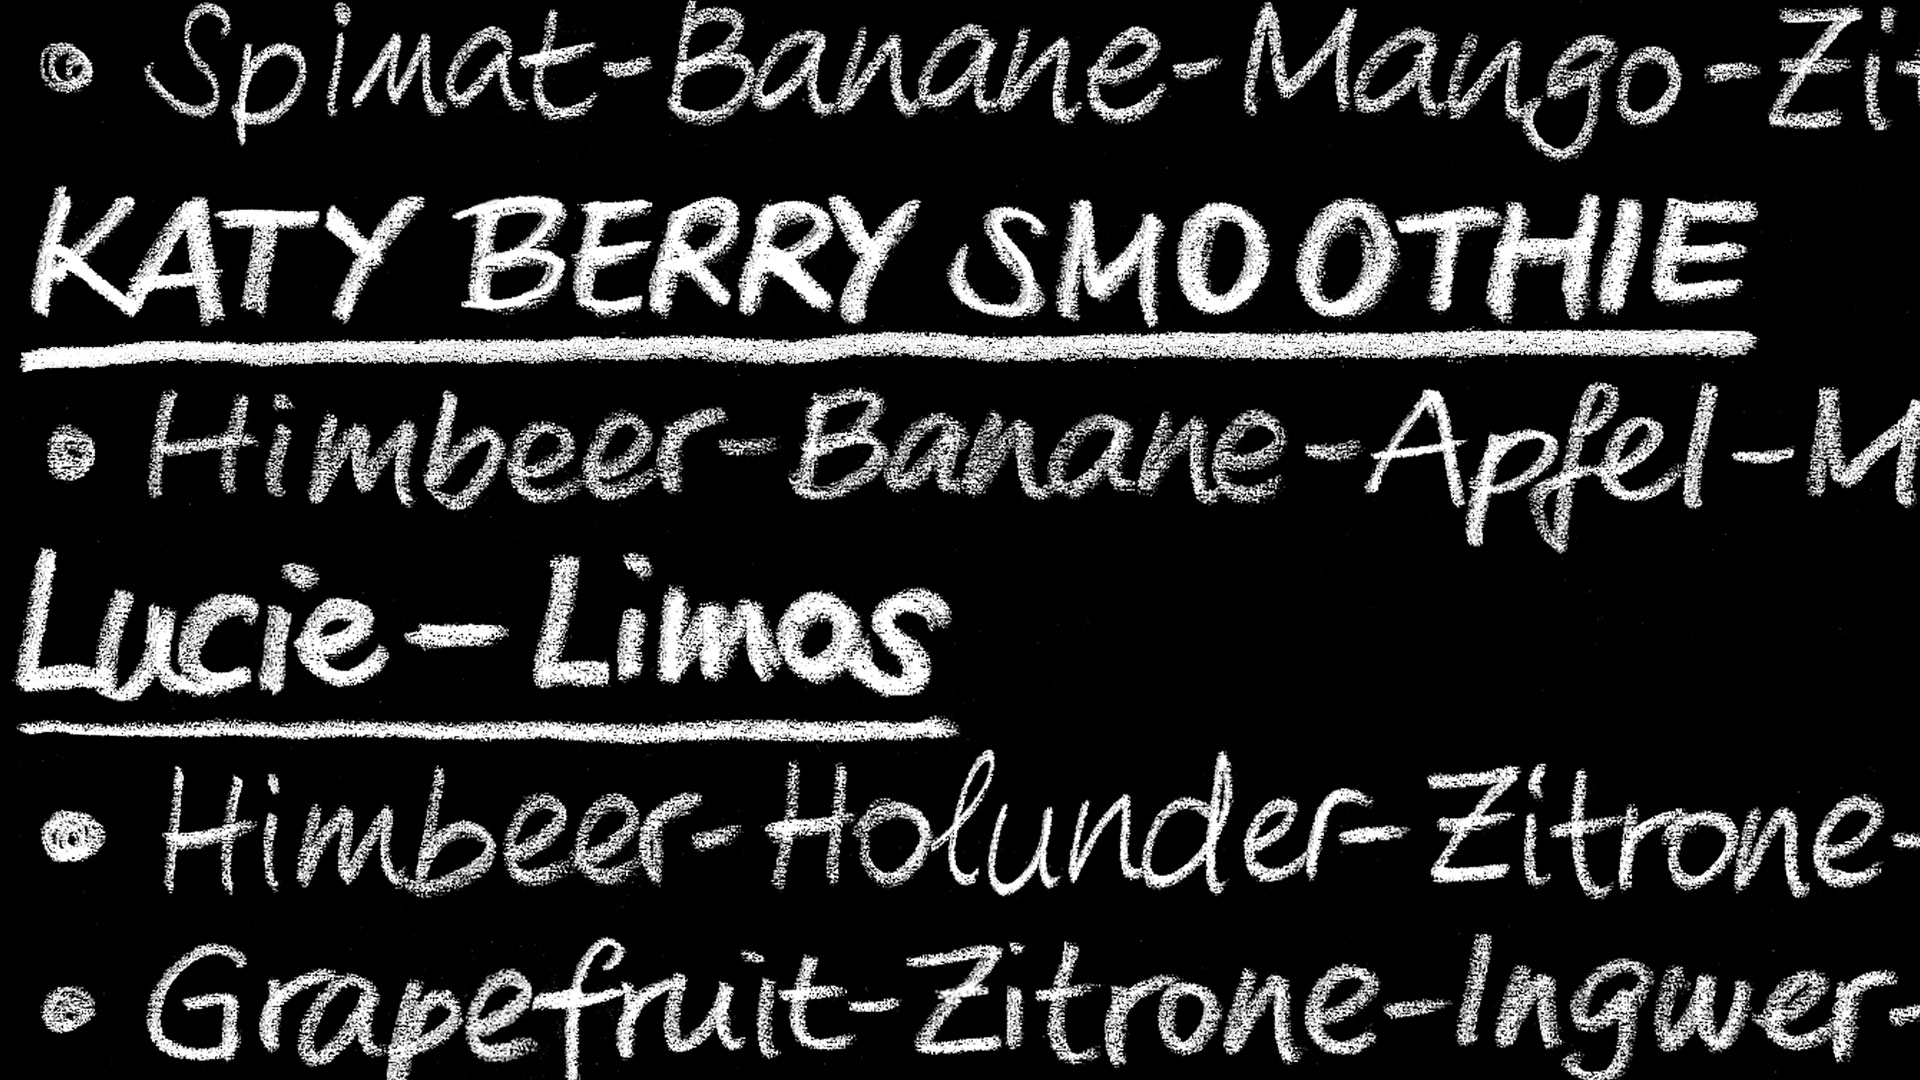 • Spinat-Banane-Mango-Zit
KATY BERRY SMOOTHIE
• Himbeer-Banane-Apfel-M
Lucie-Limos
• Himbeer-Holunder-Zitrone-
• Grapefruit-Zitrone-Ingwer-